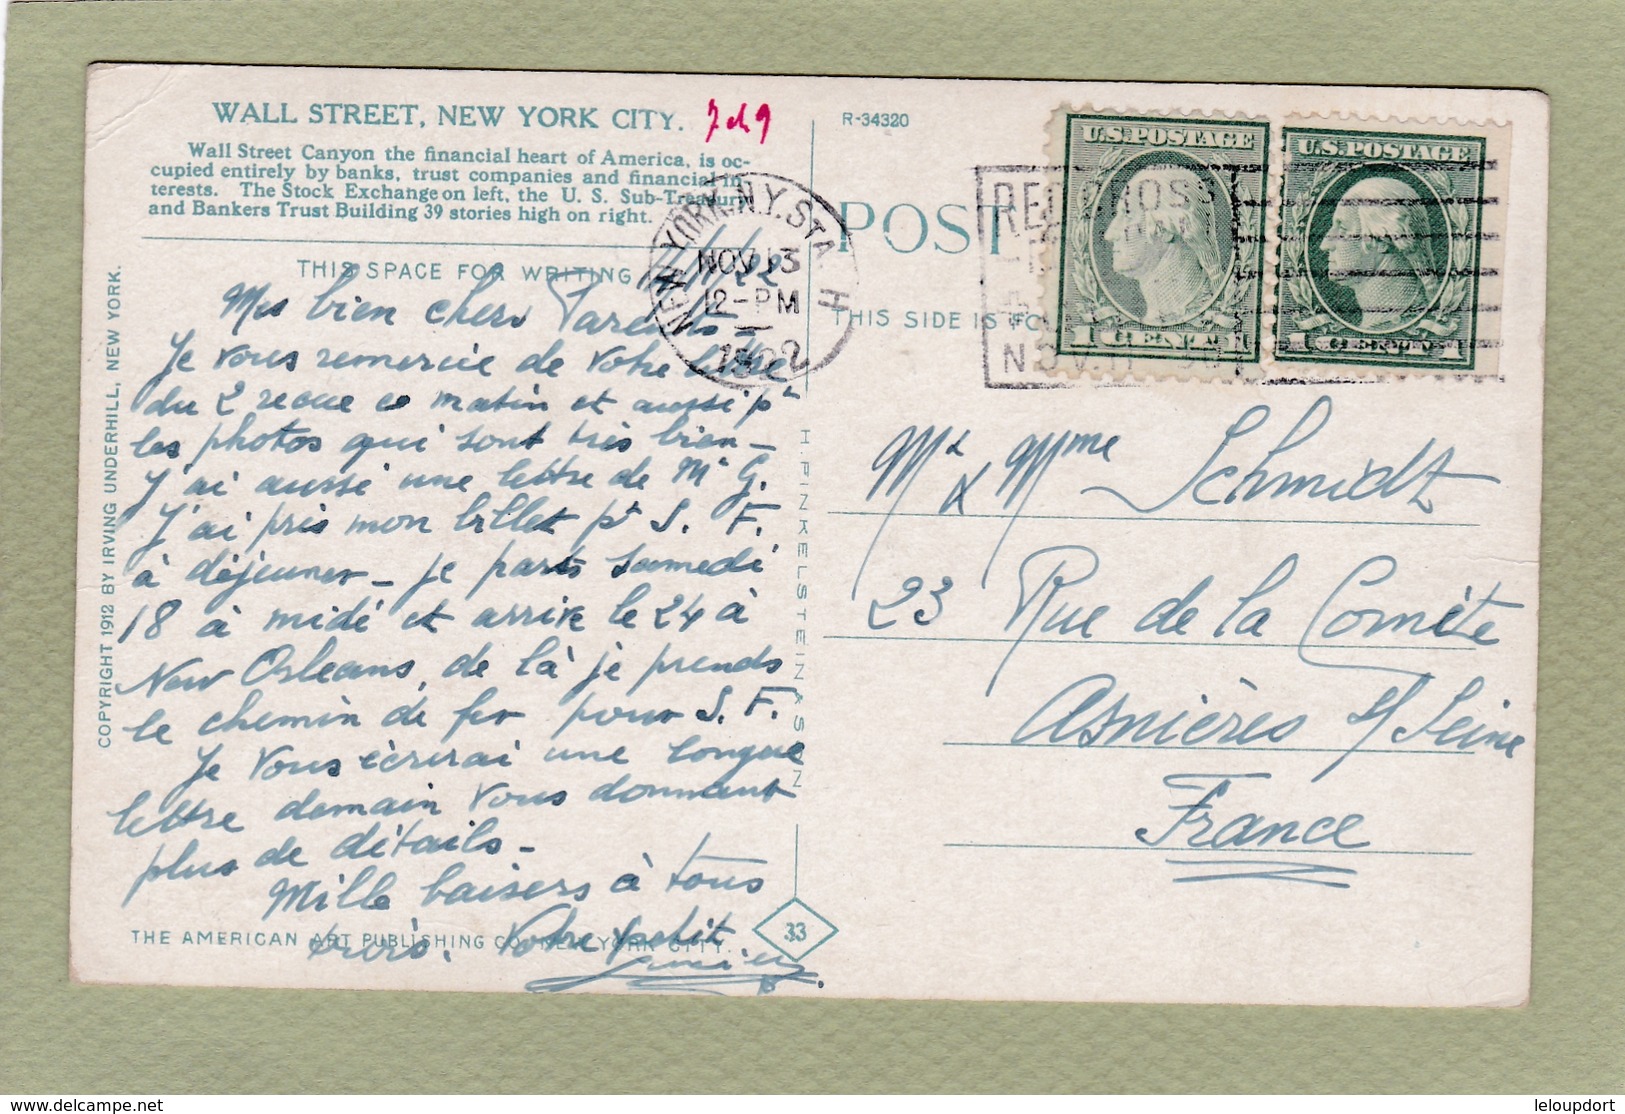 WALL STREET, NEW YORK CITY.
Wall Street Canyon the financial heart of America, is oc-
cupied entirely by banks, trust companies and financial in
terests. The Stock Exchange on left, the U. S. Sub-Treasury
and Bankers Trust Building 39 stories high on right.
THIS SPACE FOR WRITING
11/11/22
Mes bien chers Parents -
Je vous remercie de votre lettre
du 2 recue ce matin et aussi pr
les photos qui sont très bien -
J'ai aussi une lettre de Mr G.
J'ai pris mon billet pr S. F.
à déjeuner - je pars samedi
18 à midi et arrive le 24 à
New Orleans, de là je prends
le chemin de fer pour S. F.
Je vous écrirai une longue
lettre demain vous donnant
plus de détails -
Mille baisers à tous
trois. Votre petit
THE AMERICAN ART PUBLISHING CO. NEW YORK CITY.
COPYRIGHT 1912 BY IRVING UNDERHILL, NEW YORK.
H. FINKELSTEIN & SON
33
R-34320
POST
THIS SIDE IS FO
NEW YORK, N.Y. STA. H
NOV 13
12-PM
1922
RED CROSS
NOV. 11
U.S. POSTAGE
1 CENT 1
U.S. POSTAGE
1 CENT 1
Mr & Mme Schmidt
23 Rue de la Comète
Asnières s/ Seine
France
leloupdort